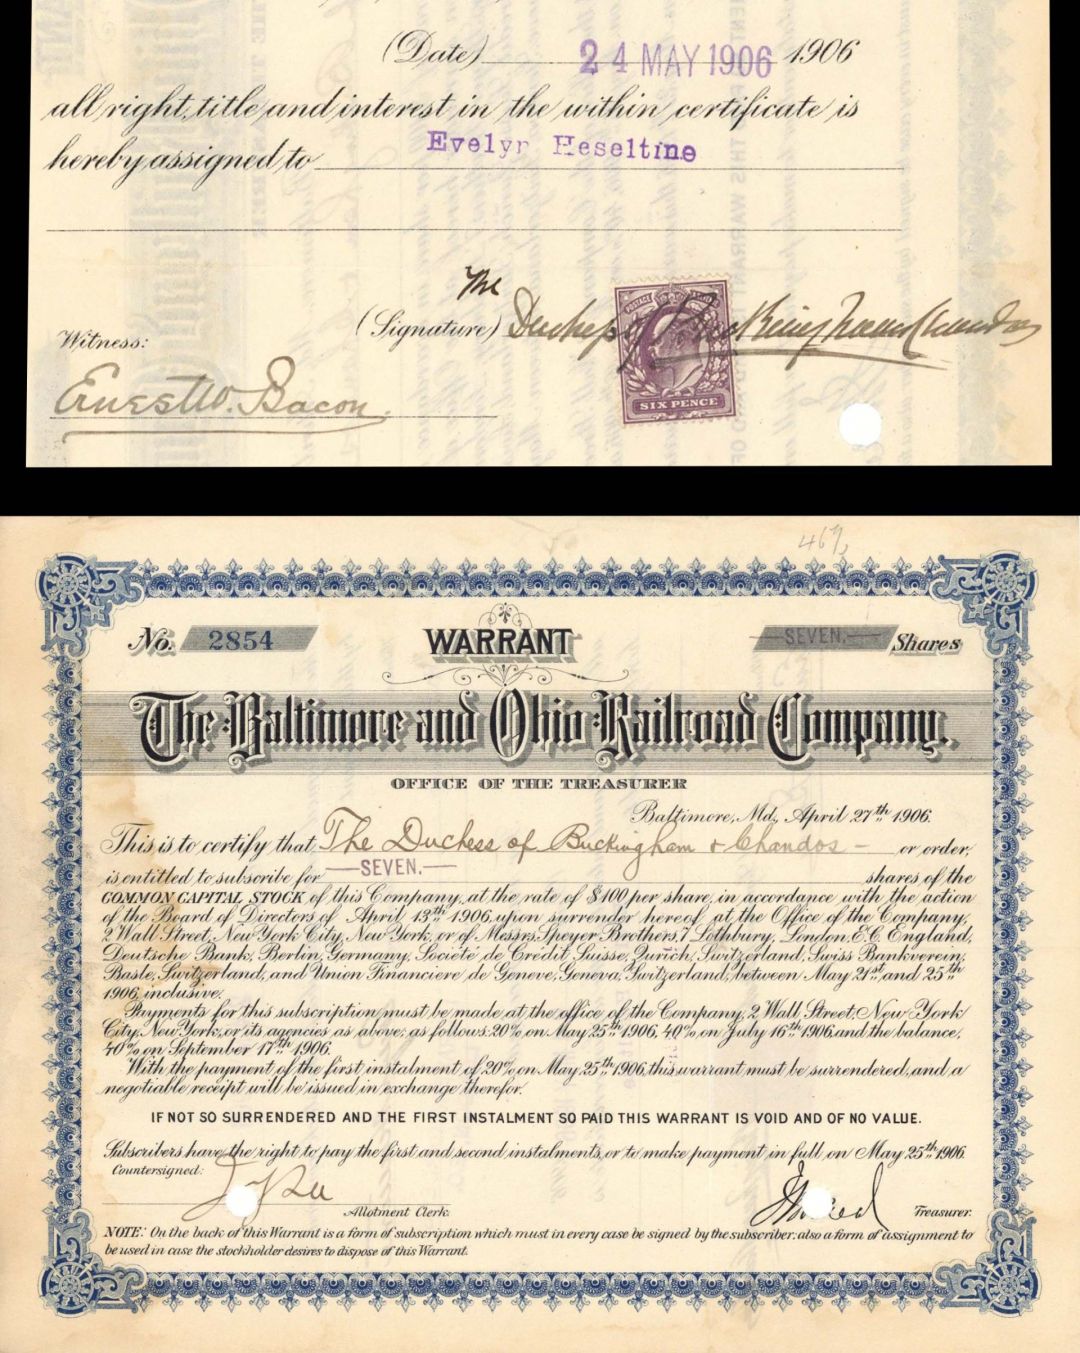 (Date) 24 MAY 1906 1906
all right, title and interest in the within certificate is
hereby assigned to Evelyn Heseltine
The
(Signature) Duchess of Buckingham & Chandos
POSTAGE
SIX PENCE
Witness:
Ernest W. Bacon
46 7/
No. 2854 WARRANT SEVEN. Shares
The Baltimore and Ohio Railroad Company.
OFFICE OF THE TREASURER
Baltimore, Md., April 27th, 1906.
This is to certify that The Duchess of Buckingham & Chandos - or order,
is entitled to subscribe for SEVEN. shares of the
COMMON CAPITAL STOCK of this Company, at the rate of $100 per share, in accordance with the action
of the Board of Directors of April 13th, 1906, upon surrender hereof at the Office of the Company,
2 Wall Street, New York City, New York, or of Messrs. Speyer Brothers, 7 Lothbury, London, E.C. England,
Deutsche Bank, Berlin, Germany, Societe de Credit Suisse, Zurich, Switzerland, Swiss Bankverein,
Basle, Switzerland, and Union Financiere de Geneve, Geneva, Switzerland, between May 21st and 25th
1906, inclusive.
Payments for this subscription must be made at the office of the Company, 2 Wall Street, New York
City, New York, or its agencies as above, as follows: 20% on May 25th, 1906, 40% on July 16th, 1906, and the balance,
40% on September 17th, 1906.
With the payment of the first instalment of 20% on May 25th, 1906, this warrant must be surrendered, and a
negotiable receipt will be issued in exchange therefor.
IF NOT SO SURRENDERED AND THE FIRST INSTALMENT SO PAID THIS WARRANT IS VOID AND OF NO VALUE.
Subscribers have the right to pay the first and second instalments, or to make payment in full on May 25th, 1906.
Countersigned:
Allotment Clerk. Treasurer.
NOTE: On the back of this Warrant is a form of subscription which must in every case be signed by the subscriber: also a form of assignment to
be used in case the stockholder desires to dispose of this Warrant.